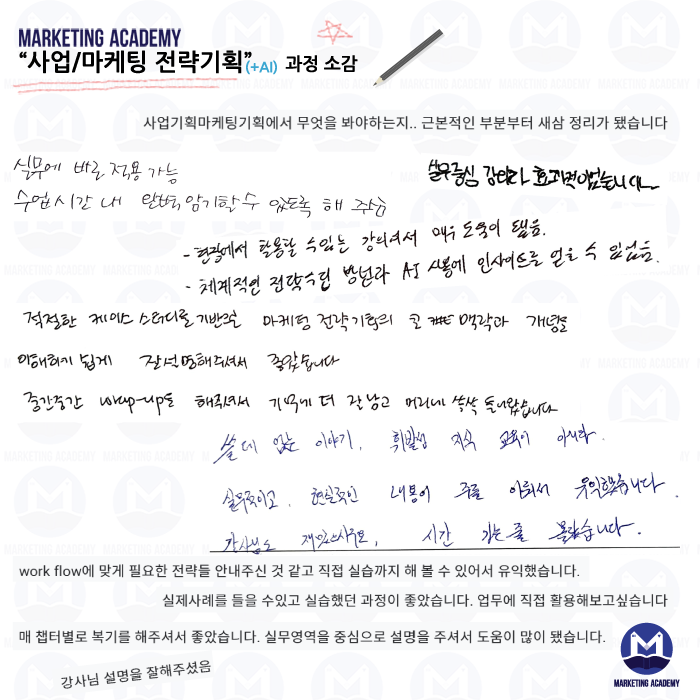 MARKETING ACADEMY
“사업/마케팅 전략기획”(+AI) 과정 소감
사업기획마케팅기획에서 무엇을 봐야하는지.. 근본적인 부분부터 새삼 정리가 됐습니다
실무에 바로 적용 가능
실무중심 강의라 효과적이었습니다
수업시간 내 완벽 암기할 수 있도록 해 주심
- 현장에서 활용할 수있는 강의여서 매우 도움이 됐음.
- 체계적인 전략수립 방법과 AI 사용에 인사이트를 얻을 수 있었음.
적절한 케이스 스터디를 기반으로 마케팅 전략기획의 큰 맥락과 개념을
이해하기 쉽게 잘 설명해주셔서 좋았습니다
중간중간 wrap-up을 해주셔서 기억에 더 잘 남고 머리에 쏙쏙 들어왔습니다
쓸데 없는 이야기, 휘발성 지식 교육이 아니라.
실무적이고, 현실적인 내용이 주를 이뤄서 유익했습니다.
강사님도 재밌으시구요, 시간 가는 줄 몰랐습니다.
work flow에 맞게 필요한 전략들 안내주신 것 같고 직접 실습까지 해 볼 수 있어서 유익했습니다.
실제사례를 들을 수있고 실습했던 과정이 좋았습니다. 업무에 직접 활용해보고싶습니다
매 챕터별로 복기를 해주셔서 좋았습니다. 실무영역을 중심으로 설명을 주셔서 도움이 많이 됐습니다.
강사님 설명을 잘해주셨음
MARKETING ACADEMY